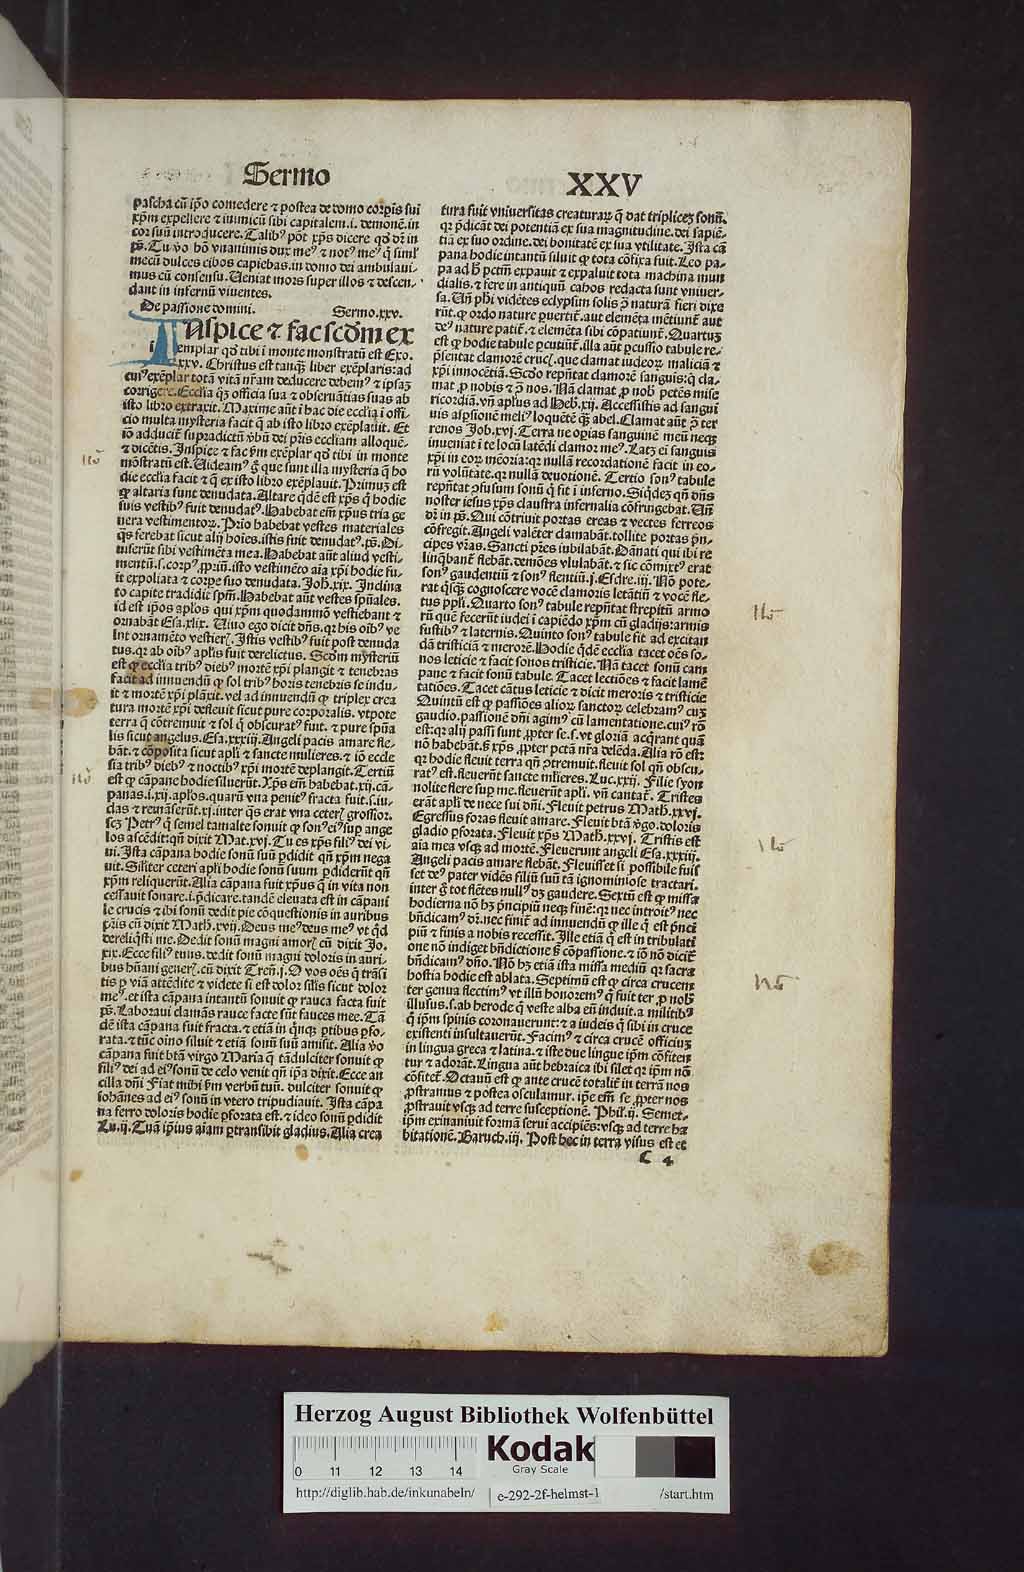 Sermo
XXV
pascha cū ip̄o comedere ⁊ postea de domo corꝑis sui
xp̄m expellere ⁊ inimicū sibi capitalem .i. demonē. in
cor suū introducere. Talibꝰ pōt xp̄s dicere qd̓ dr̄ in
ps̄. Tu v̓o hō vnanimis dux meꝰ ⁊ notꝰ meꝰ q̄ siml̓
mecū dulces cibos capiebas. in domo dei ambulaui-
mus cū consensu. Ueniat mors super illos ⁊ descen-
dant in infernū viuentes.
De passione domini. Sermo. xxv.
Aspice ⁊ fac scd̓m ex
i emplar qd̓ tibi i monte monstratū est Exo.
xxv. Christus est tanqꝫ liber exēplaris: ad
cuiꝰ exēplar totā vitā nr̄am deducere debemꝰ ⁊ ipsaꝫ
corrigere. Ecclīa qꝫ officia sua ⁊ obseruātias suas ab
isto libro extraxit. Maxime aūt i hac die ecclīa i offi-
cio multa mysteria facit q̄ ab isto libro exēplauit. Et
iō adducit̄ supradictū v̓bū dei pr̄is eccliam alloquē-
⁊ dicētis. Inspice ⁊ fac ẜm exēplar qd̓ tibi in monte
mōstratū est. Uideamꝰ g̊ que sunt illa mysteria q̄ ho
die ecclia facit ⁊ q̄ ex isto libro exēplauit. Primuꝫ est
ꝙ altaria sunt denudata. Altare qd̓ē est xp̄s q̄ hodie
suis vestibꝰ fuit denudatꝰ. Habebat em̄ xp̄us tria ge
nera vestimentoꝝ. Prīo habebat vestes materiales
q̄s ferebat sicut alij hoīes. istis fuit denudatꝰ. ps̄. Di-
uiserūt sibi vestimēta mea. Habebat aūt aliud vesti-
mentū .s. corpꝰ ꝓpriū. isto vestimēto aīa xp̄i hodie fu-
it expoliata ⁊ corpe suo denudata. Joh̓. xix. Inclina
to capite tradidit sp̄m. Habebat aūt vestes sp̄uales.
id est ip̄os apl̓os qui xp̄m quodammō vestiebant ⁊
ornabāt Esa. xlix. Uiuo ego dicit dn̄s. qꝛ his oībꝰ ve
lut ornamēto vestierꝭ. Istis vestibꝰ fuit post denuda
tus. qꝛ ab oībꝰ apl̓is fuit derelictus. Scd̓m mysteriū
est ꝙ ecclīa tribꝰ diebꝰ mortē xp̄i plangit ⁊ tenebras
facit ad innuendū ꝙ sol tribꝰ horis tenebris se indu-
it ⁊ mortē xp̄i plāxit. vel ad innuendū ꝙ triplex crea
tura mortē xp̄i defleuit sicut pure corporalis. vtpote
terra q̄ cōtremuit ⁊ sol q̄ obscuratꝰ fuit. ⁊ pure sp̄ūa
lis sicut angelus. Esa. xxxiij. Angeli pacis amare fle-
bāt. ⁊ cōposita sicut apl̓i ⁊ sancte mulieres. ⁊ iō eccle
sia tribꝰ diebꝰ ⁊ noctibꝰ xp̄i mortē deplangit. Tertiū
est ꝙ cāpane hodie siluerūt. Xp̄s em̄ habebat .xij. cā-
panas .i. xij. apl̓os. quarū vna penitꝰ fracta fuit .s. iu-
das ⁊ remāserūt .xj. inter q̄s erat vna ceterꝭ grossior.
scꝫ Petrꝰ q̄ semel tam alte sonuit ꝙ sonꝰ eiꝰ suꝑ ange
los ascēdit: qn̄ dixit Mat. xvj. Tu es xp̄s filiꝰ dei vi-
ui. Ista cāpana hodie sonū suū ꝑdidit qn̄ xp̄m nega
uit. Similiter ceteri apl̓i hodie sonū suum ꝑdiderūt qn̄
xp̄m reliquerūt. Alia cāpana fuit xp̄us q̄ in vita non
cessauit sonare .i. p̄dicare. tandē eleuata est in cāpani
le crucis ⁊ ibi sonū dedit pie cōquestionis in auribus
pr̄is cū dixit Math̓. xvij. Deus meꝰ deus meꝰ vt qd̓
dereliq̄sti me. Dedit sonū magni amorꝭ cū dixit Jo.
xix. Ecce filiꝰ tuus. dedit sonū magni doloris in auri-
bus hūani generꝭ. cū dixit Tren̄. j. O vos oēs q̄ trāsi
tis ꝑ viā attēdite ⁊ videte si est dolor silis sicut dolor
meꝰ. et ista cāpana intantū sonuit ꝙ rauca facta fuit
ps̄. Laboraui clamās rauce facte sūt fauces mee. Tā
dē ista cāpana fuit fracta. ⁊ etiā in q̄nqꝫ ꝑtibus ꝑfo-
rata. ⁊ tūc oīno siluit ⁊ etiā sonū suū amisit. Alia v̓o
cāpana fuit btā virgo Maria q̄ tā dulciter sonuit ꝙ
filiꝰ dei ad eiꝰ sonū de celo venit qn̄ ip̄a dixit. Ecce an
cilla dn̄i Fiat mihi ẜm verbū tuū. dulciter sonuit ꝙ
iohānes ad eiꝰ sonū in vtero tripudiauit. Ista cāpa
na ferro doloris hodie ꝑforata est. ⁊ ideo sonū ꝑdidit
Lu. ij. Tuā ip̄ius aiam ꝑtransibit gladius. Alia crea
tura fuit vniuersitas creaturaꝝ q̄ dat triplicem sonū.
qꝛ p̄dicāt dei potentiā ex sua magnitudine. dei sapiē-
tiā ex suo ordine. dei bonitatē ex sua vtilitate. Ista cā
pana hodie intantū siluit ꝙ tota cōfixa fuit. Leo pa-
pa ad h̓ pctm̄ expauit ⁊ expaluit tota machina mun
dialis. ⁊ fere in antiquū cahos redacta sunt vniuer-
sa. Un̄ ph̓i vidētes eclypsim solis p̄ naturā fieri dixe
rūt. ꝙ ordo nature ꝑuertit̄. aut elemēta mētiunt̄ aut
deꝰ nature patit̄. ⁊ elemēta sibi cōpatiunt̄. Quartuꝫ
est ꝙ hodie tabule ꝑcutiunt̄. illa aūt ꝑcussio tabule re-
p̄sentat clamorē crucꝭ. que clamat iudeoꝝ maliciā ⁊
xp̄i innocētiā. Scd̓o rep̄ntat clamorē sanguis: q̄ cla-
mat ꝓ nobis ⁊ p̄ nos. Nā clamat ꝓ nob̓ petēs mise
ricordiā. vn̄ apl̓us ad Heb̓. xij. Accessistis ad sangui
uis aspsionē meliꝰ loquētē qꝫ abel. Clamat aūt p̄ ter
renos Job. xvj. Terra ne opias sanguinē meū neqꝫ
inueniat i te locū latēdi clamor meꝰ. Latꝫ ei sanguis
xp̄i in eoꝝ mēoria: qꝛ nullā recordationē facit in eo-
rū volūtate. qꝛ nullā deuotionē. Tertio sonꝰ tabule
rep̄ntat ꝯfusum sonū q̄ fit i inferno. Siqdeꝫ qn̄ dn̄s
noster iesus xp̄s claustra infernalia cōfringebat. Un̄
dr̄ in ps̄. Qui cōtriuit portas ereas ⁊ vectes ferreos
cōfregit. Angeli valēter clamabāt. tollite portas p̄n-
cipes vr̄as. Sancti pr̄es iubilabāt. Dānati qui ibi re
linq̄bant̄ flebāt. demōes vlulabāt. ⁊ sic cōmixtꝰ erat
sonꝰ gaudentiū ⁊ sonꝰ flentiū. j. Esdre. iij. Nō pote-
rat q̄sqꝫ cognoscere vocē clamoris letātiū ⁊ vocē fle-
tus ppl̓i. Quarto sonꝰ tabule rep̄ntat strepitū armo
rū quē fecerūt iudei i capiēdo xp̄m cū gladijs: armis
fustibꝰ ⁊ laternis. Quinto sonꝰ tabule fit ad excitan
dā tristiciā ⁊ merorē. Hodie qd̓ē ecclīa tacet oēs so-
nos leticie ⁊ facit sonos tristicie. Nā tacet sonū cam
pane ⁊ facit sonū tabule. Tacet lectiōes ⁊ facit lamē
tatiōes. Tacet cātus leticie ⁊ dicit meroris ⁊ tristicie
Quintū est ꝙ passiōes alioꝝ sanctoꝝ celebramꝰ cuꝫ
gaudio. passionē dn̄i agimꝰ cū lamentatione. cuiꝰ rō
est: qꝛ alij passi sunt ꝓpter se .s. vt gloriā acq̄rant quā
nō habebāt. ẜ xp̄s ꝓpter pctā nr̄a delēda. Alia rō est:
qꝛ hodie fleuit terra qn̄ ꝯtremuit. fleuit sol qn̄ obscu-
ratꝰ est. fleuerūt sancte ml̓ieres. Luc. xxij. Filie syon
nolite flere suꝑ me. fleuerūt apl̓i. vn̄ cantat̄. Tristes
erāt apl̓i de nece sui dn̄i. Fleuit petrus Math̓. xxvj.
Egressus foras fleuit amare. Fleuit btā v̓go. doloris
gladio ꝑforata. Fleuit xp̄s Math̓. xxvj. Tristis est
aīa mea vsqꝫ ad mortē. Fleuerunt angeli Esa. xxxiij.
Angeli pacis amare flebāt. Fleuisset si possibile fuis
set deꝰ pater vidēs filiū suū tā ignominiose tractari.
inter g̊ tot flētes nullꝰ dꝫ gaudere. Sextū est ꝙ missa
hodierna nō hꝫ p̄ncipiū neqꝫ finē: qꝛ nec introitꝰ nec
bn̄dicamꝰ dr̄. nec finit̄ ad innuendū ꝙ ille q̄ est p̄nci
piū ⁊ finis a nobis recessit. Ille etiā q̄ est in tribulati
one nō indiget bn̄dictione ẜ cōpassione. ⁊ iō nō dicit̄
bn̄dicamꝰ dn̄o. Nō hꝫ etiā ista missa mediū qꝛ sacra
hostia hodie est ablata. Septimū est ꝙ circa crucem
ter genua flectimꝰ vt illū honoremꝰ q̄ fuit ter ꝓ nob̓
illusus .s. ab herode q̄ veste alba eū induit. a militibꝰ
q̄ ip̄m spinis coronauerunt: ⁊ a iudeis q̄ sibi in cruce
existenti insultauerūt. Facimꝰ ⁊ circa crucē officiuꝫ
in lingua greca ⁊ latina. ⁊ iste due lingue ip̄m cōfiten
tur ⁊ adorāt. Lingua aūt hebraica ibi silet qꝛ ip̄m nō
cōfitet̄. Octauū est ꝙ ante crucē totalit̄ in terrā nos
ꝓstramus ⁊ postea osculamur. ip̄e em̄ se ꝓpter nos
ꝓstrauit vsqꝫ ad terre susceptionē. Phil̓. ij. Semet-
ip̄m exinaniuit formā serui accipiēs: vsqꝫ ad terre ha
bitationē. Baruch. iij. Post hec in terra visus est et
C 4
Herzog August Bibliothek Wolfenbüttel
Kodak
Gray Scale
0 11 12 13 14
http://diglib.hab.de/inkunabeln/
e-292-2f-helmst-1
/start.htm